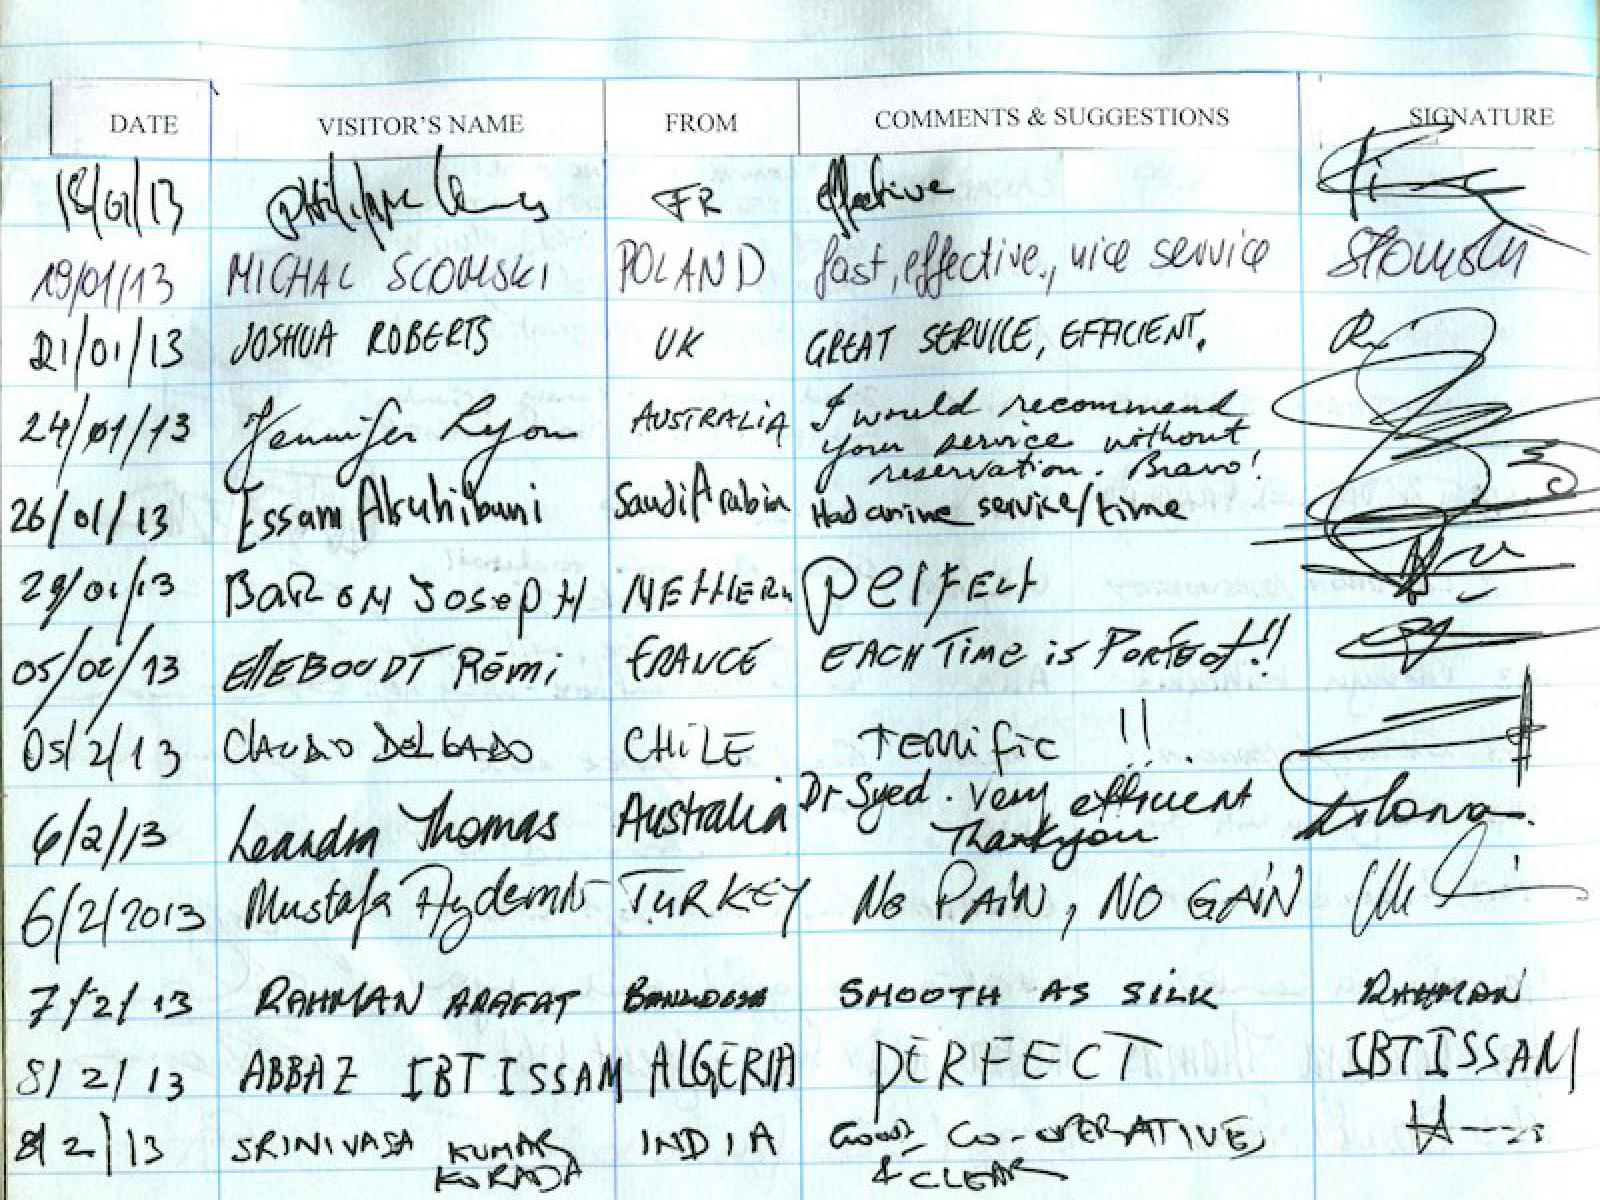 DATE VISITOR'S NAME FROM COMMENTS & SUGGESTIONS SIGNATURE
18/01/13 Philippe FR effective
19/01/13 MICHAL SCOWSKI POLAND fast, effective, nice service
21/01/13 JOSHUA ROBERTS UK GREAT SERVICE, EFFICIENT.
24/01/13 Jennifer Lyon AUSTRALIA I would recommend
your service without
reservation. Bravo!
26/01/13 Essam Saudi Arabia Had a nice service/time
29/01/13 BARON JOSEPH NETHERL perfect
05/02/13 ELLEBOUDT Rémi FRANCE EACH TIME is PERFECT!!
05/2/13 CLAUDIO DELGADO CHILE Terrific !!
6/2/13 Leandra Thomas Australia Dr Syed. Very efficient
Thankyou
6/2/2013 Mustafa Aydemir TURKEY NO PAIN, NO GAIN
7/2/13 RAHMAN ARAFAT BANGLADESH SMOOTH AS SILK RAHMAN
8/2/13 ABBAZ IBTISSAM ALGERIA PERFECT IBTISSAM
8/2/13 SRINIVASA KUMAR INDIA GOOD, CO-OPERATIVE,
KORADA & CLEAR